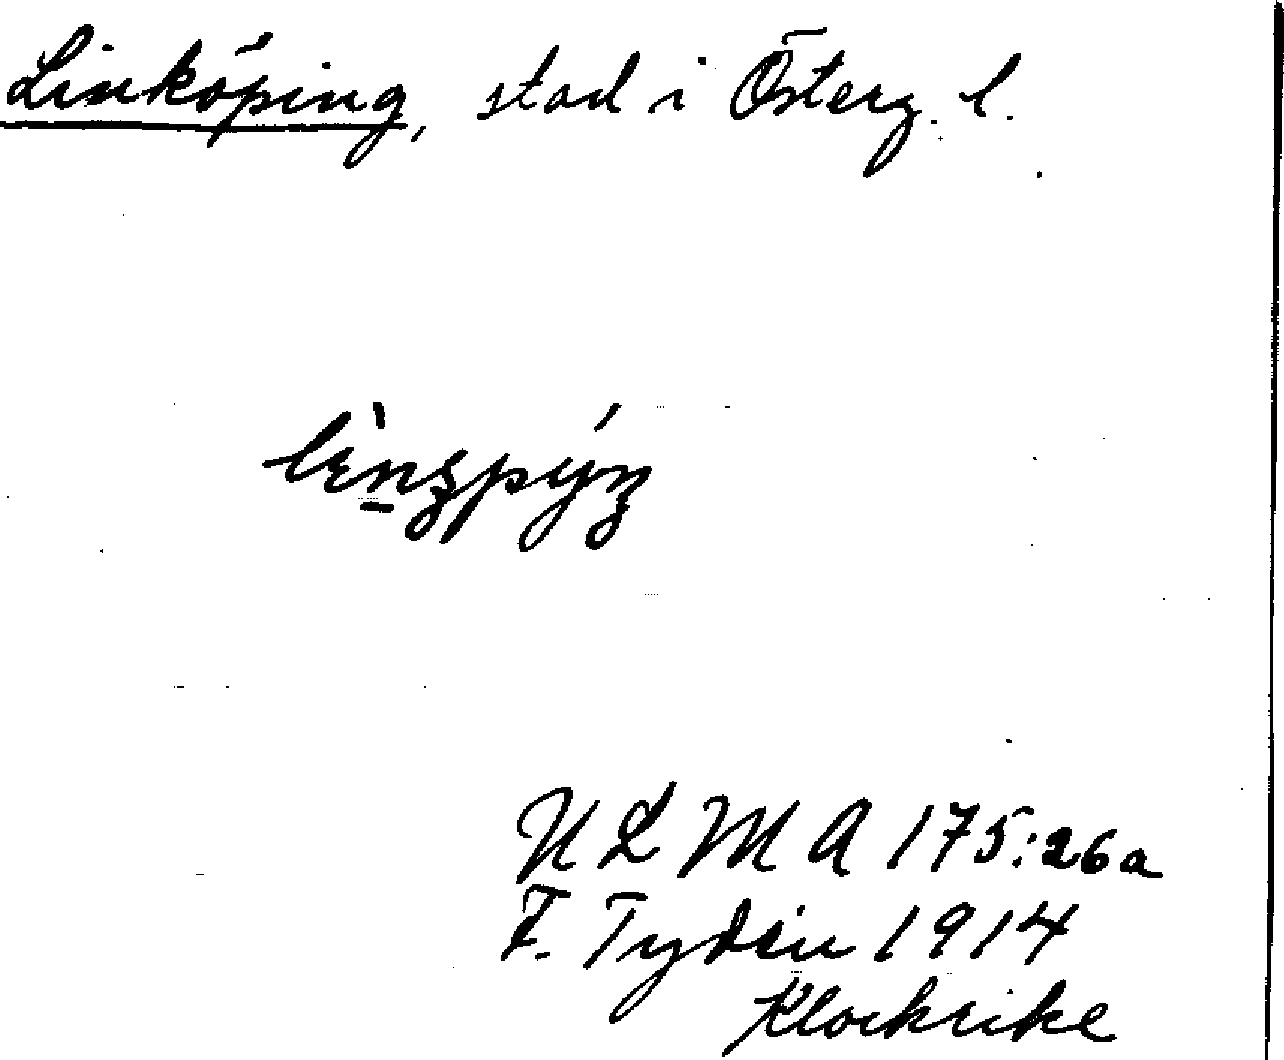 Linköping, stad i Österg. l.
lìn̲ʒpýŋ
ULMA 175:26a
F. Tydén 1914
Klockrike